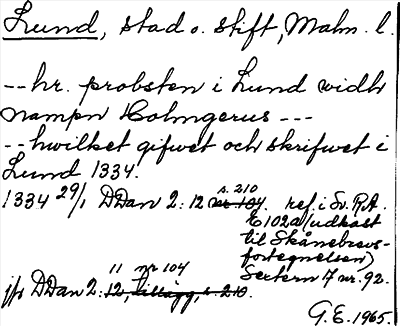 Lund, stad o. stift, Malm. l.
-- hr. probsten i Lund widh
nampn Holmgerus ---
-- hwilket gifwet och skrifwet i
Lund 1334.
1334 29/1 DDan 2: 12 nr 104 s. 210. ref. i Sv. R.A.
E 102a (utkast
till Skånebrevs-
förtegnelsen)
Sextern 17 nr. 92.
jfr DDan 2: 12, tillägg, s. 210. 11 nr 104
G.E. 1965.